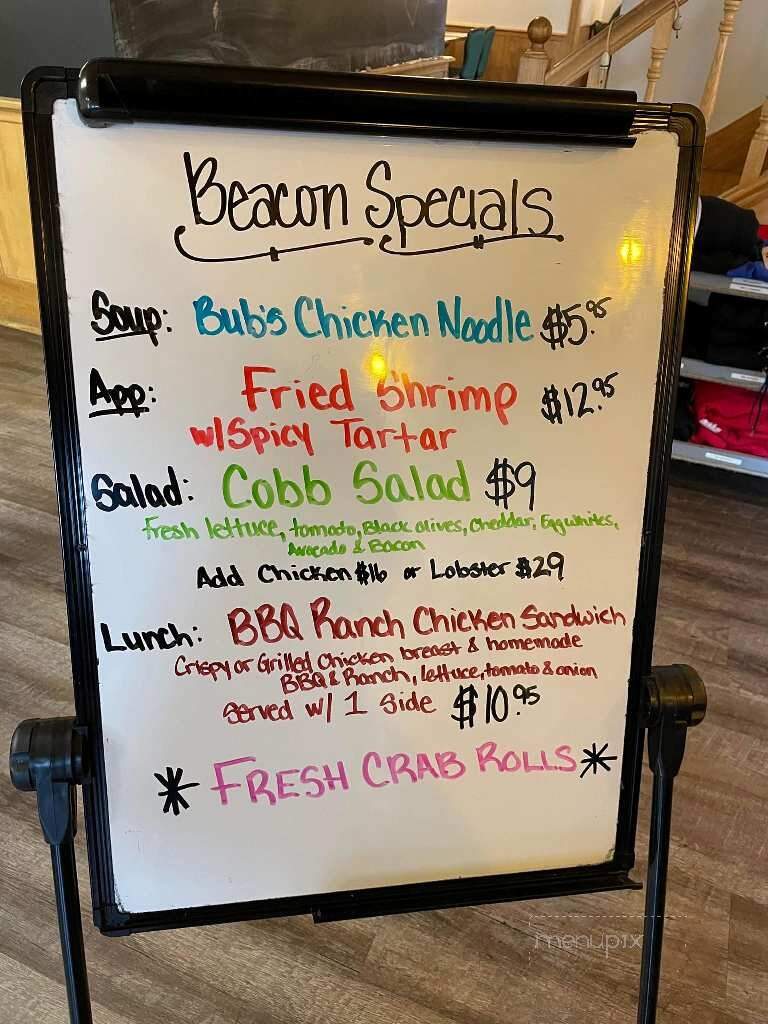 Beacon Specials
Soup: Bub's Chicken Noodle $5.95
App: Fried Shrimp $12.95
w/Spicy Tartar
Salad: Cobb Salad $9
Fresh lettuce, tomato, Black olives, cheddar, Egg whites,
Avocado & Bacon
Add Chicken $16 or Lobster $29
Lunch: BBQ Ranch Chicken Sandwich
Crispy or Grilled Chicken breast & homemade
BBQ & Ranch, lettuce, tomato & onion
Served w/ 1 Side $10.95
* FRESH CRAB ROLLS *
menupix